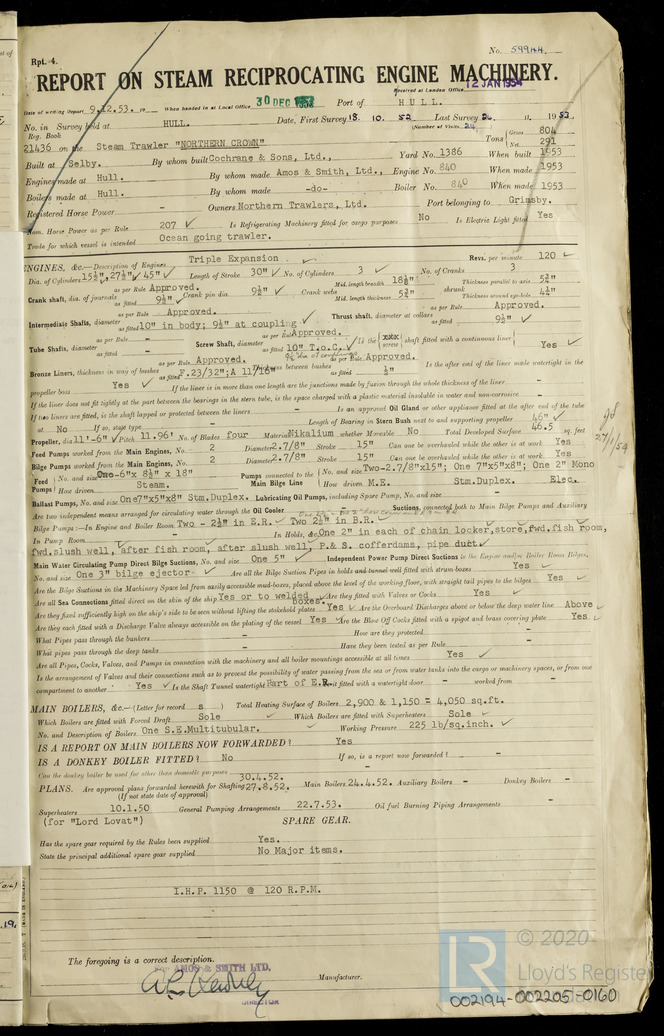 Rpt. 4.
No. 59944.
REPORT ON STEAM RECIPROCATING ENGINE MACHINERY.
Received at London Office 12 JAN 1954
Date of writing Report 9.12.53. 19 When handed in at Local Office 30 DEC 1953 Port of HULL.
No. in Survey held at HULL. Date, First Survey 18. 10. 52 Last Survey 11. 1953
Reg. Book (Number of Visits
21436 on the Steam Trawler "NORTHERN CROWN" Tons Gross 804 Net 291
Built at Selby. By whom built Cochrane & Sons, Ltd., Yard No. 1386 When built 1953
Engines made at Hull. By whom made Amos & Smith, Ltd., Engine No. 840 When made 1953
Boilers made at Hull. By whom made -do- Boiler No. 840 When made 1953
Registered Horse Power - Owners Northern Trawlers, Ltd. Port belonging to Grimsby.
Nom. Horse Power as per Rule 207 ✓ Is Refrigerating Machinery fitted for cargo purposes No Is Electric Light fitted Yes
Trade for which vessel is intended Ocean going trawler.
ENGINES, &c.—Description of Engines Triple Expansion ✓ Revs. per minute 120 ✓
Dia. of Cylinders 15½", 27½" ✓ 45" ✓ Length of Stroke 30" ✓ No. of Cylinders 3 ✓ No. of Cranks 3
Crank shaft, dia. of journals as per Rule Approved. as fitted 9½" ✓ Crank pin dia. 9½" ✓ Crank webs Mid. length breadth 18½" Mid. length thickness 5¾" shrunk Thickness parallel to axis 5¾" Thickness around eyehole 4¼"
Intermediate Shafts, diameter as per Rule Approved. as fitted 10" in body; 9½" at coupling ✓ Thrust shaft, diameter at collars as per Rule Approved. as fitted 9½" ✓
Tube Shafts, diameter as per Rule - as fitted - Screw Shaft, diameter as per Rule Approved. as fitted 10" T.o.C. ✓ Is the screw shaft fitted with a continuous liner Yes ✓
Bronze Liners, thickness in way of bushes as per Rule Approved. as fitted F.23/32"; A 11/16" Thickness between bushes as per Rule Approved. as fitted ½" Is the after end of the liner made watertight in the
propeller boss Yes ✓ If the liner is in more than one length are the junctions made by fusion through the whole thickness of the liner -
If the liner does not fit tightly at the part between the bearings in the stern tube, is the space charged with a plastic material insoluble in water and non-corrosive -
If two liners are fitted, is the shaft lapped or protected between the liners - Is an approved Oil Gland or other appliance fitted at the after end of the tube
shaft No If so, state type - Length of Bearing in Stern Bush next to and supporting propeller 46" ✓
Propeller, dia. 11'-6" ✓ Pitch 11.96' No. of Blades four Material Nikalium whether Moveable No Total Developed Surface 46.5 sq. feet
Feed Pumps worked from the Main Engines, No. 2 Diameter 2.7/8" Stroke 15" Can one be overhauled while the other is at work Yes
Bilge Pumps worked from the Main Engines, No. 2 Diameter 2.7/8" Stroke 15" Can one be overhauled while the other is at work Yes
Feed Pumps No. and size One-6"x 8½" x 18" How driven Steam. Pumps connected to the Main Bilge Line No. and size Two-2.7/8"x15"; One 7"x5"x8"; One 2" Mono How driven M.E. Stm.Duplex. Elec.
Ballast Pumps, No. and size One 7"x5"x8" Stm.Duplex. Lubricating Oil Pumps, including Spare Pump, No. and size -
Are two independent means arranged for circulating water through the Oil Cooler - Suctions, connected both to Main Bilge Pumps and Auxiliary
Bilge Pumps:—In Engine and Boiler Room Two - 2½" in E.R. ✓ Two 2½" in B.R. ✓
In Pump Room - In Holds, &c. One 2" in each of chain locker, store, fwd. fish room,
fwd. slush well, after fish room, after slush well, P.& S. cofferdams, pipe duct. ✓
Main Water Circulating Pump Direct Bilge Suctions, No. and size One 5" ✓ Independent Power Pump Direct Suctions to the Engine and/or Boiler Room Bilges,
No. and size One 3" bilge ejector ✓ Are all the Bilge Suction Pipes in holds and tunnel well fitted with strum-boxes Yes ✓
Are the Bilge Suctions in the Machinery Space led from easily accessible mud-boxes, placed above the level of the working floor, with straight tail pipes to the bilges Yes ✓
Are all Sea Connections fitted direct on the skin of the ship Yes or to welded boxes. Are they fitted with Valves or Cocks Yes ✓
Are they fixed sufficiently high on the ship's side to be seen without lifting the stokehold plates Yes ✓ Are the Overboard Discharges above or below the deep water line Above ✓
Are they each fitted with a Discharge Valve always accessible on the plating of the vessel Yes ✓ Are the Blow Off Cocks fitted with a spigot and brass covering plate Yes ✓
What Pipes pass through the bunkers - How are they protected -
What pipes pass through the deep tanks - Have they been tested as per Rule -
Are all Pipes, Cocks, Valves, and Pumps in connection with the machinery and all boiler mountings accessible at all times Yes ✓
Is the arrangement of Valves and their connections such as to prevent the possibility of water passing from the sea or from water tanks into the cargo or machinery spaces, or from one
compartment to another Yes ✓ Is the Shaft Tunnel watertight Part of E.R. Is it fitted with a watertight door - worked from -
MAIN BOILERS, &c.—(Letter for record s) Total Heating Surface of Boilers 2,900 & 1,150 = 4,050 sq.ft.
Which Boilers are fitted with Forced Draft Sole ✓ Which Boilers are fitted with Superheaters Sole ✓
No. and Description of Boilers One S.E.Multitubular. Working Pressure 225 lb/sq.inch. ✓
IS A REPORT ON MAIN BOILERS NOW FORWARDED? Yes
IS A DONKEY BOILER FITTED? No If so, is a report now forwarded? -
Can the donkey boiler be used for other than domestic purposes -
PLANS. Are approved plans forwarded herewith for Shafting 30.4.52. 27.8.52. Main Boilers 24.4.52. Auxiliary Boilers - Donkey Boilers -
(If not state date of approval)
Superheaters 10.1.50 General Pumping Arrangements 22.7.53. Oil fuel Burning Piping Arrangements -
(for "Lord Lovat") SPARE GEAR.
Has the spare gear required by the Rules been supplied Yes.
State the principal additional spare gear supplied No Major items.
I.H.P. 1150 @ 120 R.P.M.
The foregoing is a correct description.
For AMOS & SMITH LTD.
DIRECTOR
Manufacturer.
© 2020
LR Lloyd's Register
002194-002205-0160